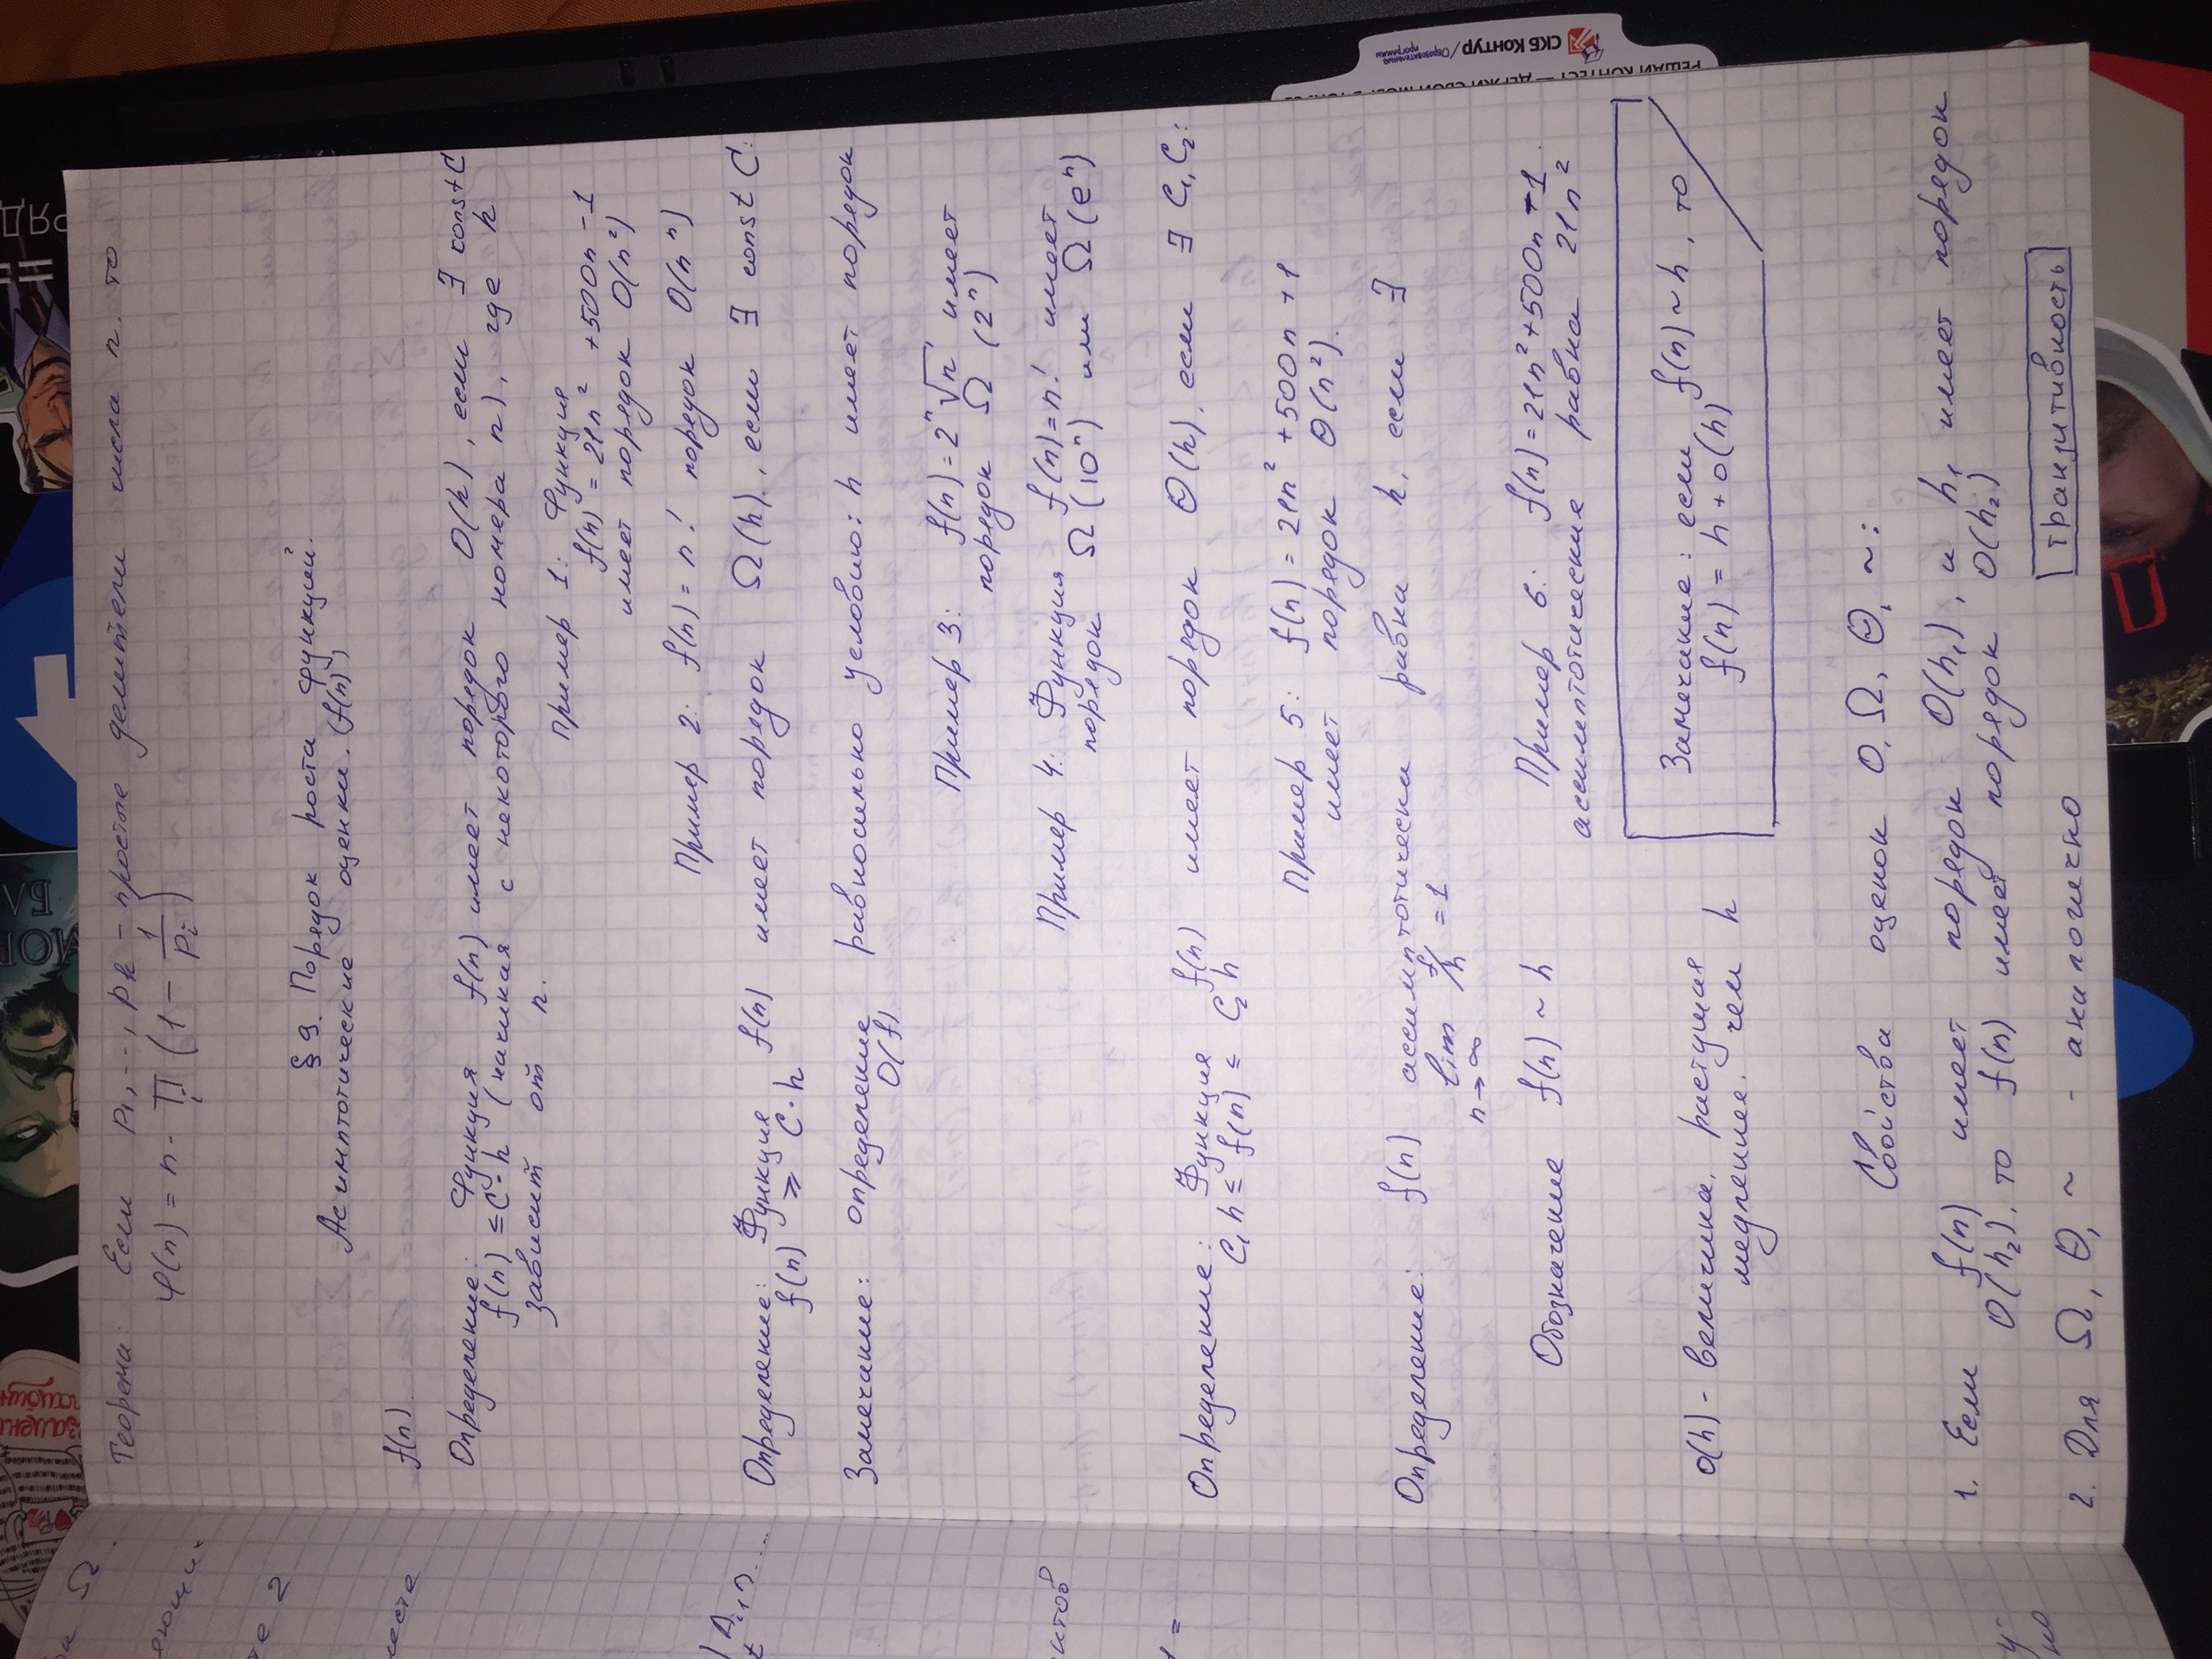 Теорема: Если p₁, ..., pₖ - простые делители числа n, то
φ(n) = n · ∏ᵢ (1 - 1/pᵢ)
§ 9. Порядок роста функций.
Асимптотические оценки. (f(n))
f(n).
Определение: Функция f(n) имеет порядок O(h), если ∃ const C
f(n) ≤ C·h (начиная с некоторого номера n), где h
зависит от n.
Пример 1: Функция
f(n) = 21n² + 500n - 1
имеет порядок O(n²)
Пример 2: f(n) = n! порядок O(nⁿ)
Определение: Функция f(n) имеет порядок Ω(h), если ∃ const C:
f(n) ⩾ C·h
Замечание: определение равносильно условию: h имеет порядок
O(f).
Пример 3: f(n) = 2ⁿ√n имеет
порядок Ω (2ⁿ)
Пример 4: Функция f(n) = n! имеет
порядок Ω (10ⁿ) или Ω (eⁿ)
Определение: Функция f(n) имеет порядок Θ(h), если ∃ C₁, C₂:
C₁h ≤ f(n) ≤ C₂h
Пример 5: f(n) = 21n² + 500n + 1
имеет порядок Θ(n²).
Определение: f(n) ассимптотически равна h, если ∃
lim f/h = 1
n→∞
Обозначение f(n) ~ h
Пример 6: f(n) = 21n² + 500n - 1.
ассимптотические равна 21n²
o(h) - величина, растущая
медленнее, чем h
Замечание: если f(n) ~ h, то
f(n) = h + o(h)
Свойства оценок O, Ω, Θ, ~:
1. Если f(n) имеет порядок O(h₁), и h₁ имеет порядок
O(h₂), то f(n) имеет порядок O(h₂)
2. Для Ω, Θ, ~ - аналогично
транзитивность
СКБ Контур / Образовательные программы